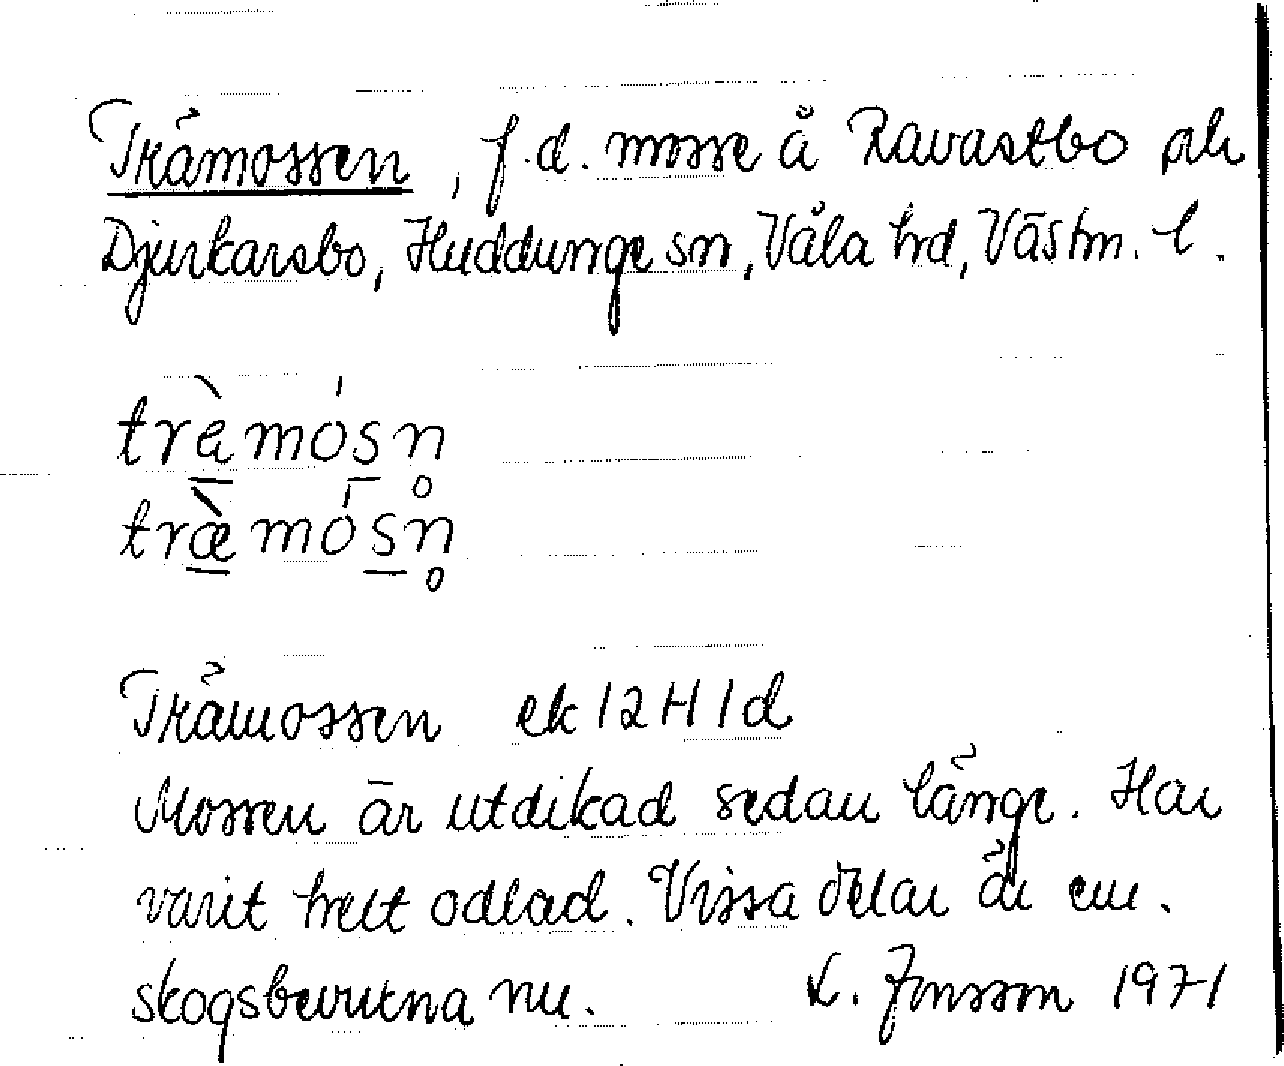 Trämossen, f.d. mosse å Ravastbo
Djurkarsbo, Huddunge sn, Våla hd, Västm. l.
trὲ̱mós̱n̥
træ̱̀mós̱n̥
Trämossen ek 12H 1d
Mossen är utdikad sedan länge. Har
varit helt odlad. Vissa delar är em.
skogsbevuxna nu. L. Jonsson 1971